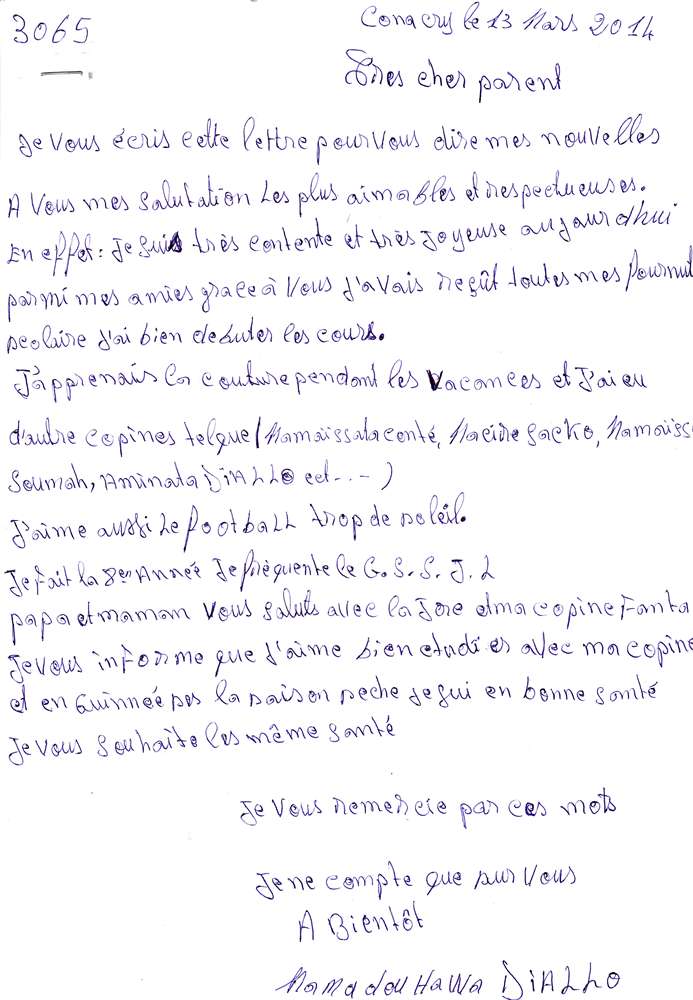 3065
Conacry le 13 Mars 2014
Très cher parent
Je vous écris cette lettre pour vous dire mes nouvelles
A vous mes salutation les plus aimables et respectueuses.
En effet: Je suis très contente et très joyeuse aujourd'hui
parmi mes amies grace à vous j'avais reçût toutes mes fournit
scolaire j'ai bien debuter les cours.
J'apprenais la couture pendant les vacances et j'ai eu
d'autre copines telque (Mamaïssata conté, Maciré Sacko, Mamaïss
Soumah, Aminata DiALLO ect...-)
J'aime aussi le football trop de soleil.
Je fait la 8em Année Je fréquente le G.S.S.J.L
papa et maman vous saluts avec la joie et ma copine Fanta
Je vous informe que j'aime bien etudi er avec ma copine
et en Guinnée pes la saison seche je sui en bonne santé
Je vous souhaite les même santé
Je vous remercie par ces mots
Je ne compte que sur vous
A Bientôt
Mamadou Hawa DiALLO